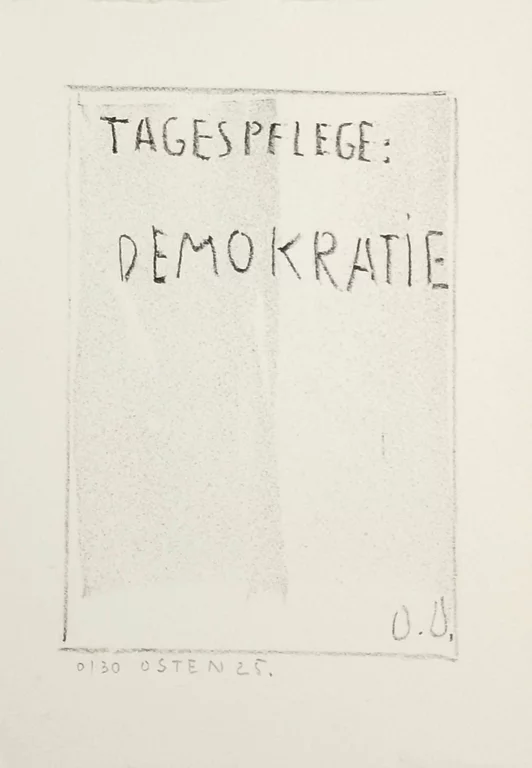 TAGESPFLEGE:
DEMOKRATIE
O.O.
0130 OSTEN 25.